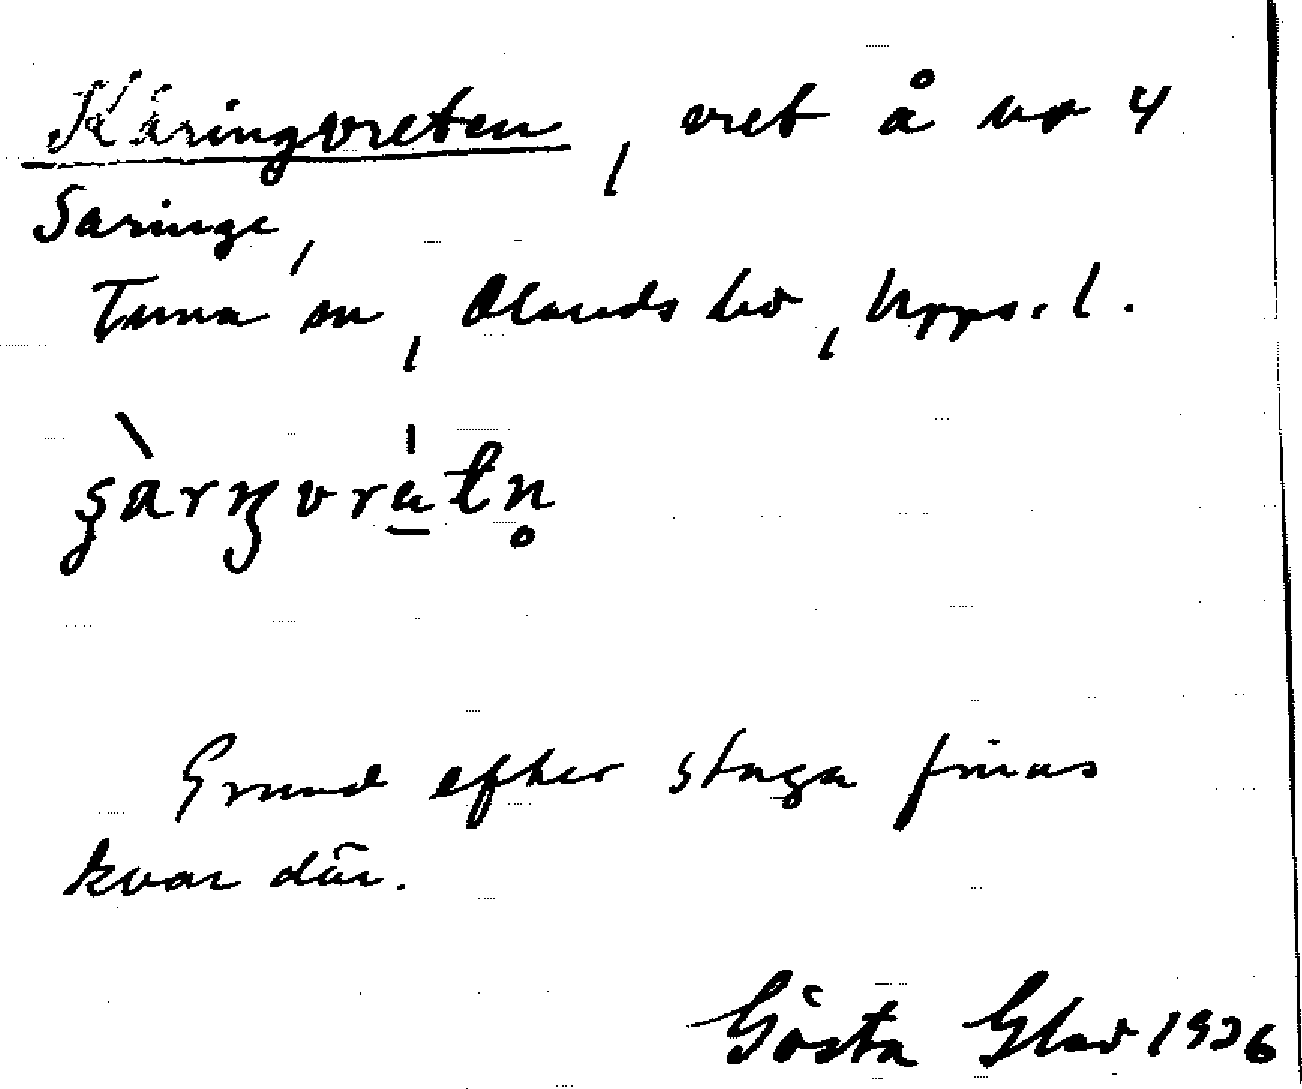 Käringvreten, vret å nr 4
Saringe,
Tuna sn, Olands hd, Upps. l.
Grund efter stuga finns
kvar där.
Gösta Glad 1936